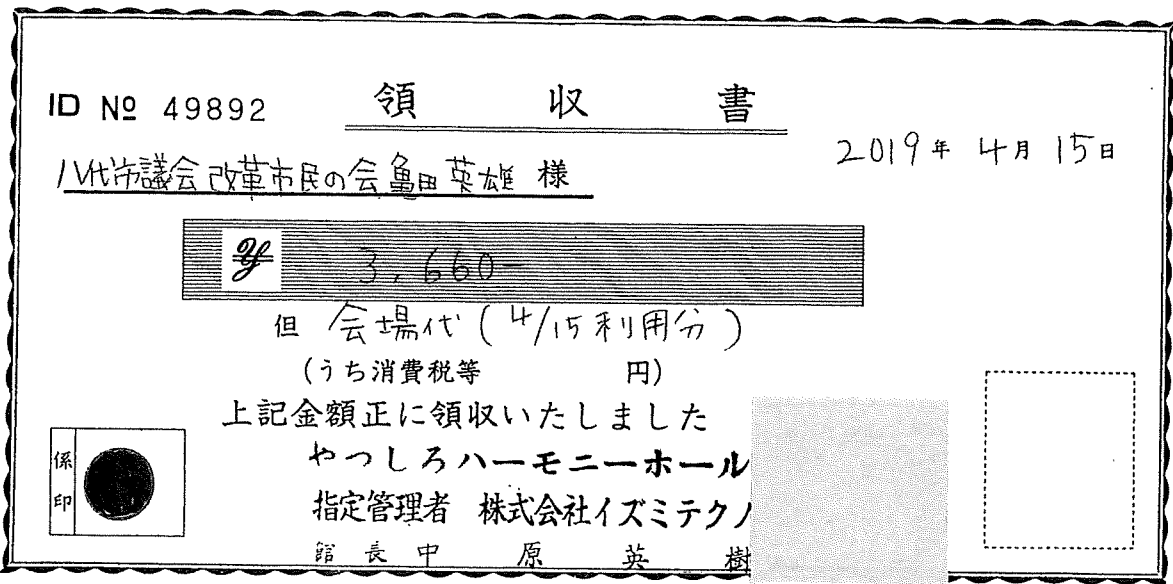 ID № 49892
領収書
2019年 4月 15日
八代市議会改革市民の会 亀田英雄 様
¥ 3,660-
但 会場代(4/15利用分)
(うち消費税等 円)
上記金額正に領収いたしました
やつしろハーモニーホール
指定管理者 株式会社イズミテクノ
館長 中原英樹
係印